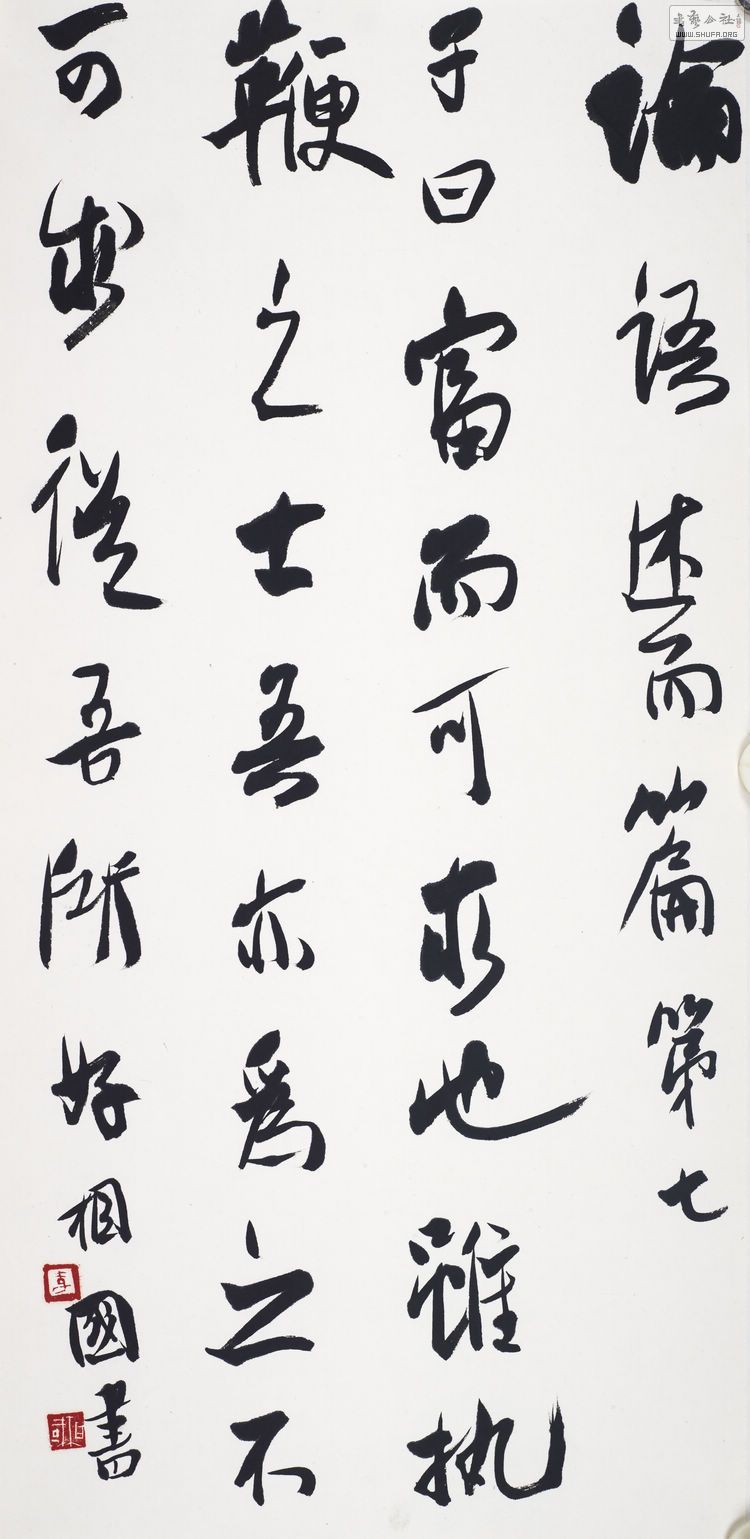 論語述而篇第七
子曰富而可求也雖执
鞭之士吾亦爲之不
可求從吾所好相國書
WWW.SHUFA.ORG